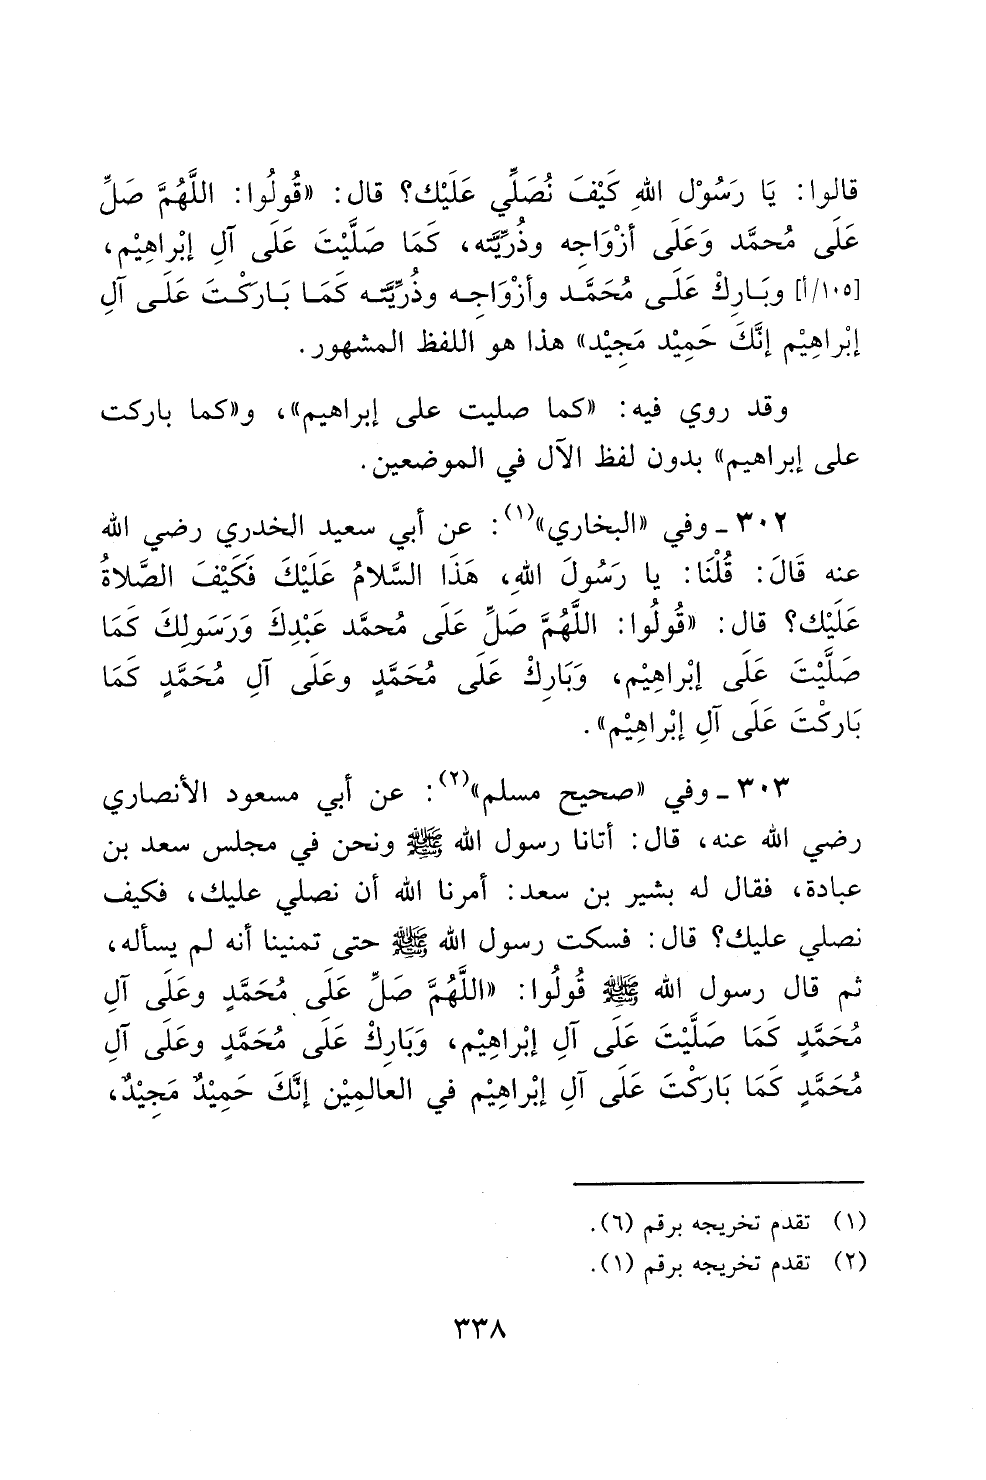 قالوا: يَا رَسُوْل اللهِ كَيْفَ نُصَلِّي عَلَيْك؟ قال: «قُولُوا: اللَّهُمَّ صَلِّ
عَلَى مُحمَّد وَعَلَى أزْوَاجِه وذُرِّيَّته، كَمَا صَلَّيْتَ عَلَى آلِ إبْراهِيْم،
[١٠٥/أ] وبَارِكْ عَلَى مُحَمَّد وأزْوَاجِه وذُرِّيَّته كَمَا بَارَكْتَ عَلَى آلِ
إبْراهِيْم إنَّكَ حَمِيْد مَجِيْد» هذا هو اللفظ المشهور.
وقد روي فيه: «كما صليت على إبراهيم»، و«كما باركت
على إبراهيم» بدون لفظ الآل في الموضعين.
٣٠٢ ـ وفي «البخاري»(١): عن أبي سعيد الخدري رضي الله
عنه قَالَ: قُلْنَا: يا رَسُولَ اللهِ، هَذَا السَّلامُ عَلَيْكَ فَكَيْفَ الصَّلاةُ
عَلَيْك؟ قال: «قُولُوا: اللَّهُمَّ صَلِّ عَلَى مُحمَّد عَبْدِكَ وَرَسَولِكَ كَمَا
صَلَّيْتَ عَلَى إبْراهِيْم، وَبَارِكْ عَلَى مُحَمَّدٍ وعَلَى آلِ مُحَمَّدٍ كَمَا
بَاركْتَ عَلَى آلِ إبْراهِيْم».
٣٠٣ ـ وفي «صحيح مسلم»(٢): عن أبي مسعود الأنصاري
رضي الله عنه، قال: أتانا رسول الله ﷺ ونحن في مجلس سعد بن
عبادة، فقال له بشير بن سعد: أمرنا الله أن نصلي عليك، فكيف
نصلي عليك؟ قال: فسكت رسول الله ﷺ حتى تمنينا أنه لم يسأله،
ثم قال رسول الله ﷺ قُولُوا: «اللَّهُمَّ صَلِّ عَلَى مُحَمَّدٍ وعَلَى آلِ
مُحَمَّدٍ كَمَا صَلَّيْتَ عَلَى آلِ إبْراهِيْم، وَبَارِكْ عَلَى مُحَمَّدٍ وعَلَى آلِ
مُحَمَّدٍ كَمَا بَارَكْتَ عَلَى آلِ إبْراهِيْم في العالمِيْن إنَّكَ حَمِيْدٌ مَجِيْدٌ،
(١) تقدم تخريجه برقم (٦).
(٢) تقدم تخريجه برقم (١).
٣٣٨